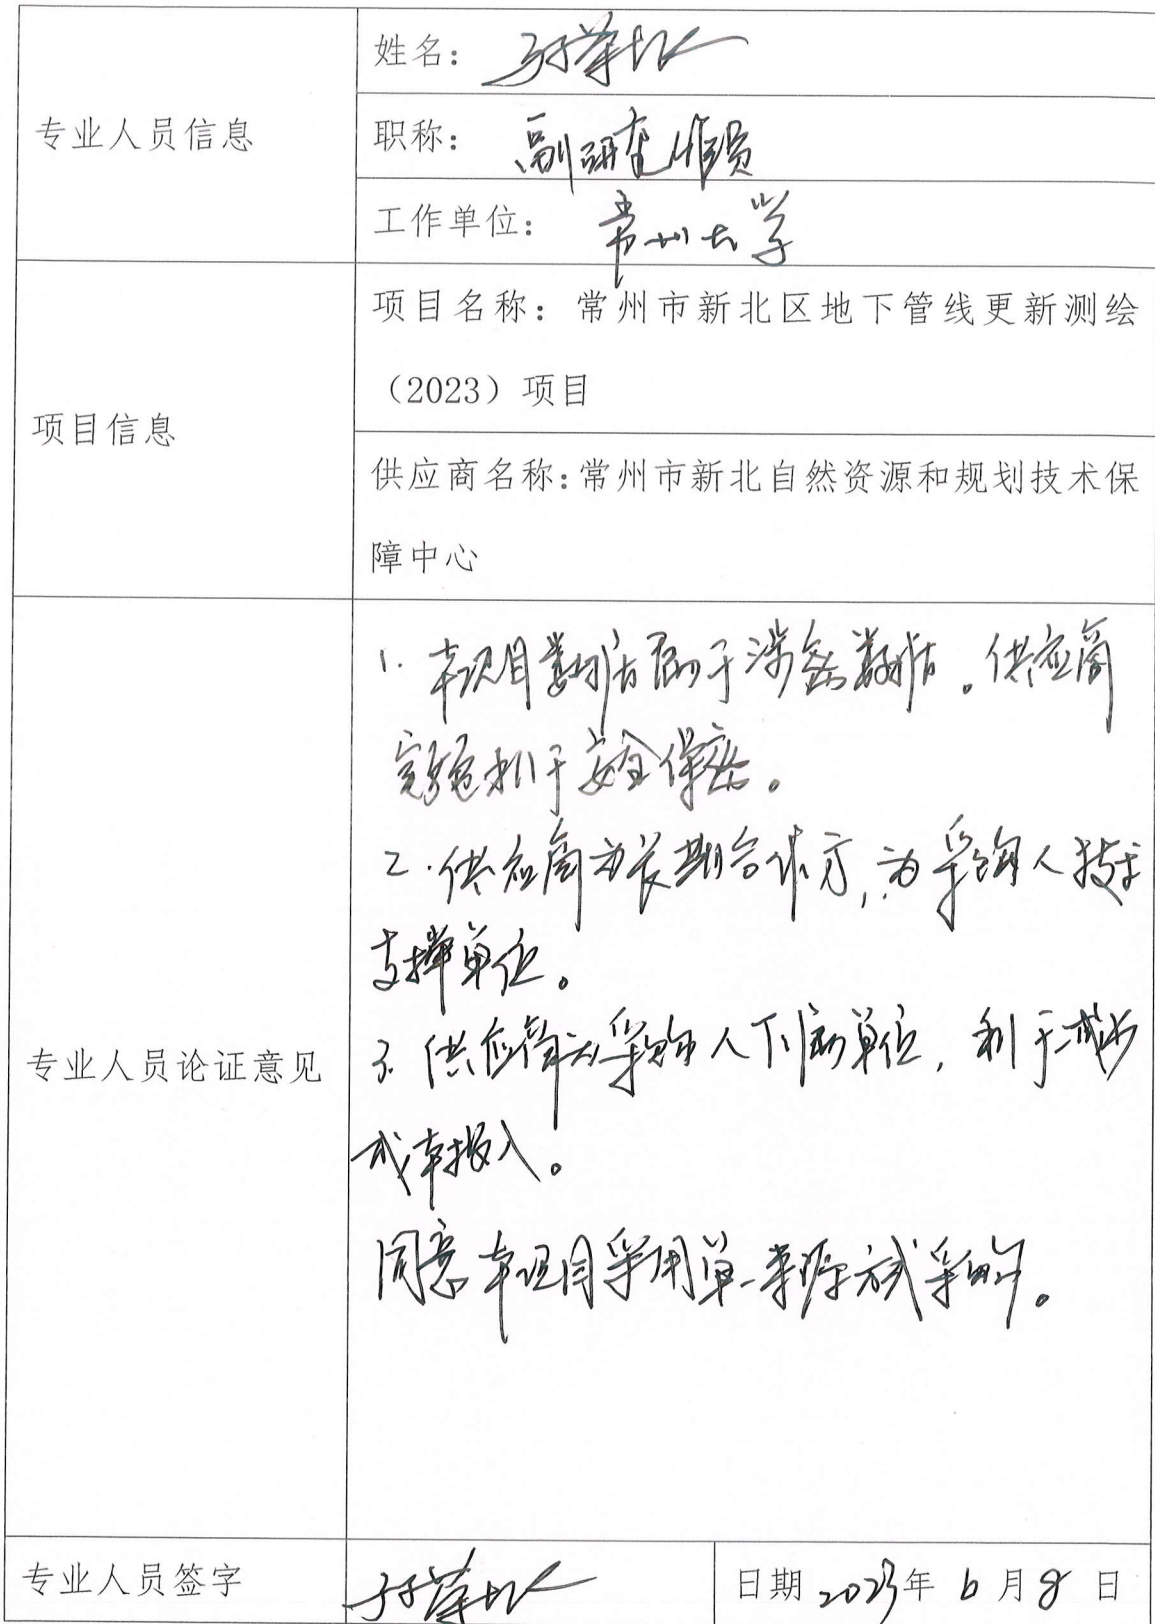 专业人员信息
姓名：
职称：副研究馆员
工作单位：常州大学
项目信息
项目名称：常州市新北区地下管线更新测绘
（2023）项目
供应商名称：常州市新北自然资源和规划技术保
障中心
专业人员论证意见
1. 本项目数据属于涉密数据。供应商
利于安全保密。
2. 供应商为长期合作方，为采购人技术
支撑单位。
3. 供应商为采购人下属单位，利于减少
成本投入。
同意本项目采用单一来源方式采购。
专业人员签字
日期 2023年 6月8日